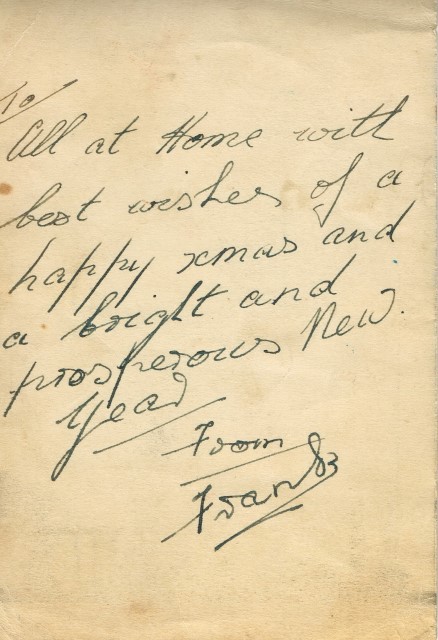 To
All at Home with
best wishes of a
happy xmas and
a bright and
prosperous New
Year
From
Frank